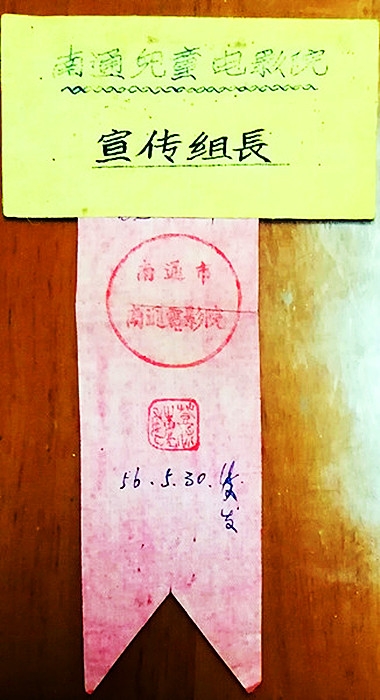 南通兒童电影院
宣传组長
南通市
南通電影院
56.5.30.
发